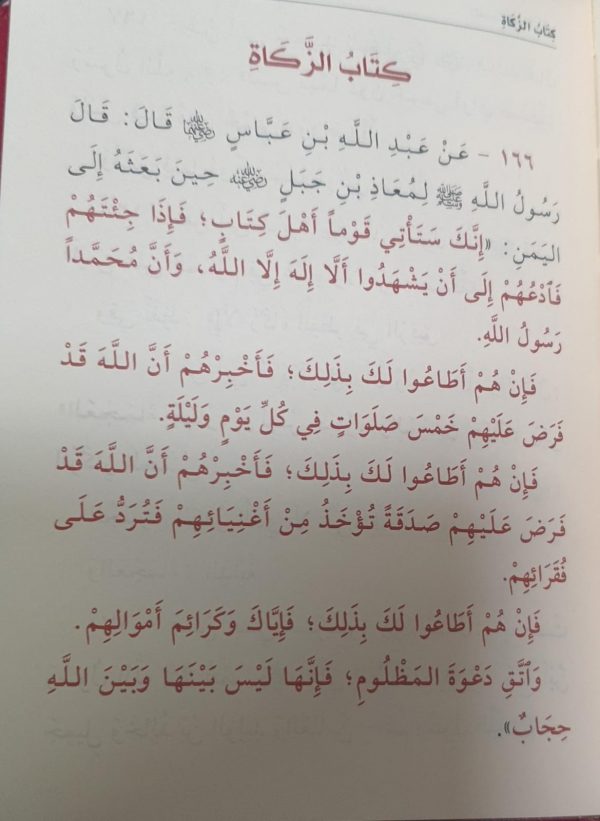 كِتَابُ الزَّكَاةِ
كِتَابُ الزَّكَاةِ
١٦٦ - عَنْ عَبْدِ اللَّهِ بْنِ عَبَّاسٍ ﵄ قَالَ: قَالَ
رَسُولُ اللَّهِ ﷺ لِمُعَاذِ بْنِ جَبَلٍ ﵁ حِينَ بَعَثَهُ إِلَى
اليَمَنِ: «إِنَّكَ سَتَأْتِي قَوْماً أَهْلَ كِتَابٍ؛ فَإِذَا جِئْتَهُمْ
فَٱدْعُهُمْ إِلَى أَنْ يَشْهَدُوا أَلَّا إِلَهَ إِلَّا اللَّهُ، وَأَنَّ مُحَمَّداً
رَسُولُ اللَّهِ.
فَإِنْ هُمْ أَطَاعُوا لَكَ بِذَلِكَ؛ فَأَخْبِرْهُمْ أَنَّ اللَّهَ قَدْ
فَرَضَ عَلَيْهِمْ خَمْسَ صَلَوَاتٍ فِي كُلِّ يَوْمٍ وَلَيْلَةٍ.
فَإِنْ هُمْ أَطَاعُوا لَكَ بِذَلِكَ؛ فَأَخْبِرْهُمْ أَنَّ اللَّهَ قَدْ
فَرَضَ عَلَيْهِمْ صَدَقَةً تُؤْخَذُ مِنْ أَغْنِيَائِهِمْ فَتُرَدُّ عَلَى
فُقَرَائِهِمْ.
فَإِنْ هُمْ أَطَاعُوا لَكَ بِذَلِكَ؛ فَإِيَّاكَ وَكَرَائِمَ أَمْوَالِهِمْ.
وَٱتَّقِ دَعْوَةَ المَظْلُومِ؛ فَإِنَّهَا لَيْسَ بَيْنَهَا وَبَيْنَ اللَّهِ
حِجَابٌ».